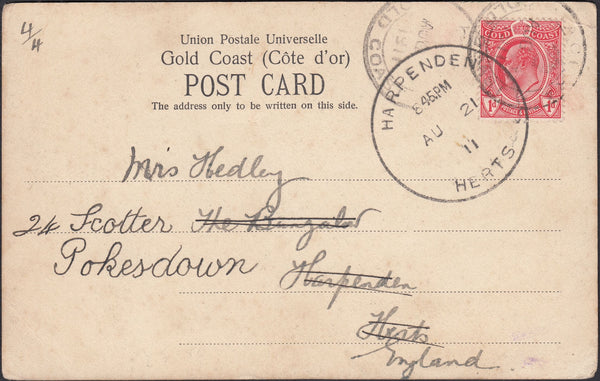 4/4
Union Postale Universelle
Gold Coast (Côte d'or)
POST CARD
The address only to be written on this side.
GOLD COAST
1d 1d
HARPENDEN
8.45PM
AU 21
11
HERTS
Mrs Hedley
24 Scotter The Bungalow
Pokesdown
Harpenden
Herts
England